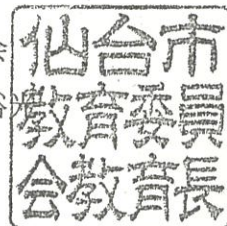 仙台市
教育委員
会教育長